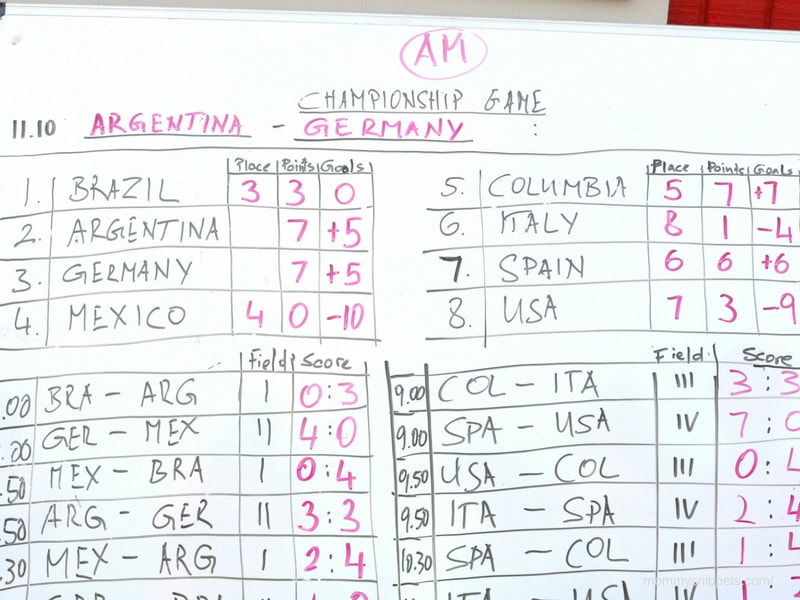 AM
CHAMPIONSHIP GAME
11.10 ARGENTINA - GERMANY :
Place Points Goals
1. BRAZIL 3 3 0
2. ARGENTINA 7 +5
3. GERMANY 7 +5
4. MEXICO 4 0 -10
Place Points Goals
5. COLUMBIA 5 7 +7
6. ITALY 8 1 -4
7. SPAIN 6 6 +6
8. USA 7 3 -9
Field Score
.00 BRA - ARG I 0:3
.00 GER - MEX II 4:0
.50 MEX - BRA I 0:4
.50 ARG - GER II 3:3
.30 MEX - ARG I 2:4
Field Score
9.00 COL - ITA III 3:3
9.00 SPA - USA IV 7:0
9.50 USA - COL III 0:4
9.50 ITA - SPA IV 2:4
10.30 SPA - COL III 1:4
mommysnippets.com/